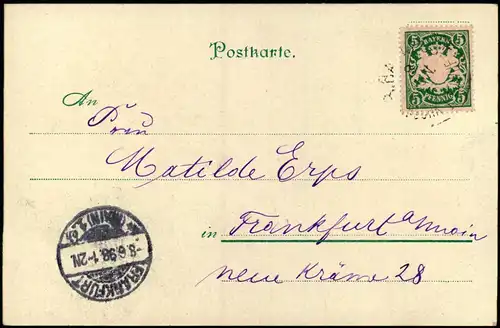 Postkarte.
5 BAYERN 5
5 PFENNIG 5
An
Frau
Matilde Erps
in Frankfurt a/Main
neue Kräme 28
FRANKFURT
-9.6.98.1-2N.
(MAIN)